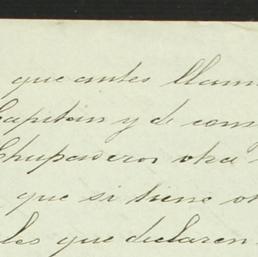 que antes llam
Capitan y de com
Chupaderos otra
que si tiene o
les que declaren